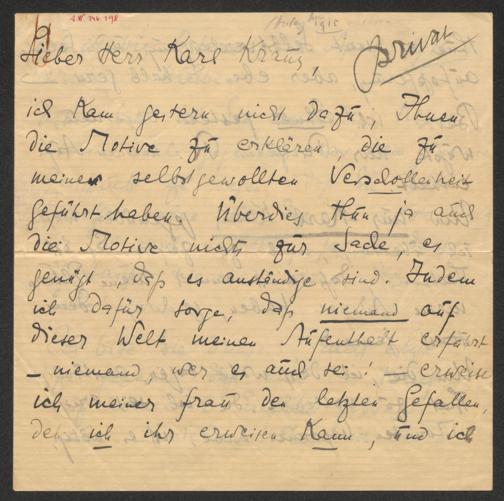 privat
Lieber Herr Karl Kraus,
ich kam gestern nicht dazu, Ihnen
die Motive zu erklären, die zu
meiner selbstgewollten Verschollenheit
geführt haben. Überdies thun ja auch
die Motive nichts zur Sache, es
genügt, daß es anständige sind. Indem
ich dafür sorge, daß niemand auf
dieser Welt meinen Aufenthalt erfährt
– niemand, wer es auch sei! – erweise
ich meiner Frau den letzten Gefallen,
den ich ihr erweisen kann, und ich